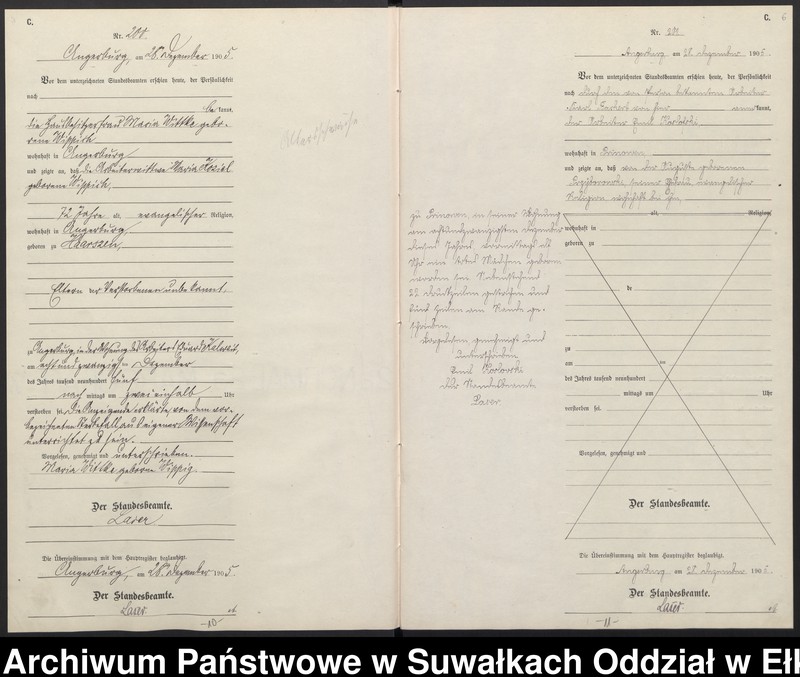 C.
Nr. 200.
Angerburg, am 28. Dezember 1905.
Vor dem unterzeichneten Standesbeamten erschien heute, der Persönlichkeit
nach
be kannt,
die Hausbesitzerfrau Maria Wittke gebo-
rene Wippich
wohnhaft in Angerburg
und zeigte an, daß die Arbeiterwitwe Maria
geborene Wippich,
72 Jahre alt, evangelischer Religion,
wohnhaft in Angerburg,
geboren zu Haarszen,
Eltern der Verstorbenen unbekannt
zu Angerburg, in der Wohnung des Arbeiters Eduard
am acht und zwanzigsten Dezember
des Jahres tausend neunhundert fünf
nach mittags um zweieinhalb Uhr
verstorben sei. Die Anzeigende erklärte, von dem vor-
bezeichneten Sterbefall aus eigener Wissenschaft
unterrichtet zu sein.
Vorgelesen, genehmigt und unterschrieben.
Maria Wittke geborene Wippig
Der Standesbeamte.
Laser
Die Übereinstimmung mit dem Hauptregister beglaubigt.
Angerburg, am 28. Dezember 1905.
Der Standesbeamte.
Laser
-10-
C.
6
Nr. 201
Angerburg am 28. Dezember 1905.
Vor dem unterzeichneten Standesbeamten erschien heute, der Persönlichkeit
nach durch den von Person bekannten Arbeiter
kannt,
der Arbeiter
wohnhaft in
und zeigte an, daß von der Auguste geborenen
seiner Ehefrau evangelischer
Religion wohnhaft bei ihm,
alt, Religion,
wohnhaft in
geboren zu
de
zu
am ten
des Jahres tausend neunhundert
mittags um Uhr
verstorben sei.
Vorgelesen, genehmigt und
zu in seiner Wohnung
am achtundzwanzigsten Dezember
dieses Jahres vormittags
Uhr ein totes Mädchen geboren
worden sei. Nebenstehend
22 Druckzeilen gestrichen und
fünf Zeilen am Rande ge-
schrieben.
Vorgelesen, genehmigt und
unterschrieben
Der Standesbeamte
Laser.
Der Standesbeamte.
Die Übereinstimmung mit dem Hauptregister beglaubigt.
Angerburg am 28. Dezember 1905.
Der Standesbeamte.
Laser
-11-
Archiwum Państwowe w Suwałkach Oddział w Ełk